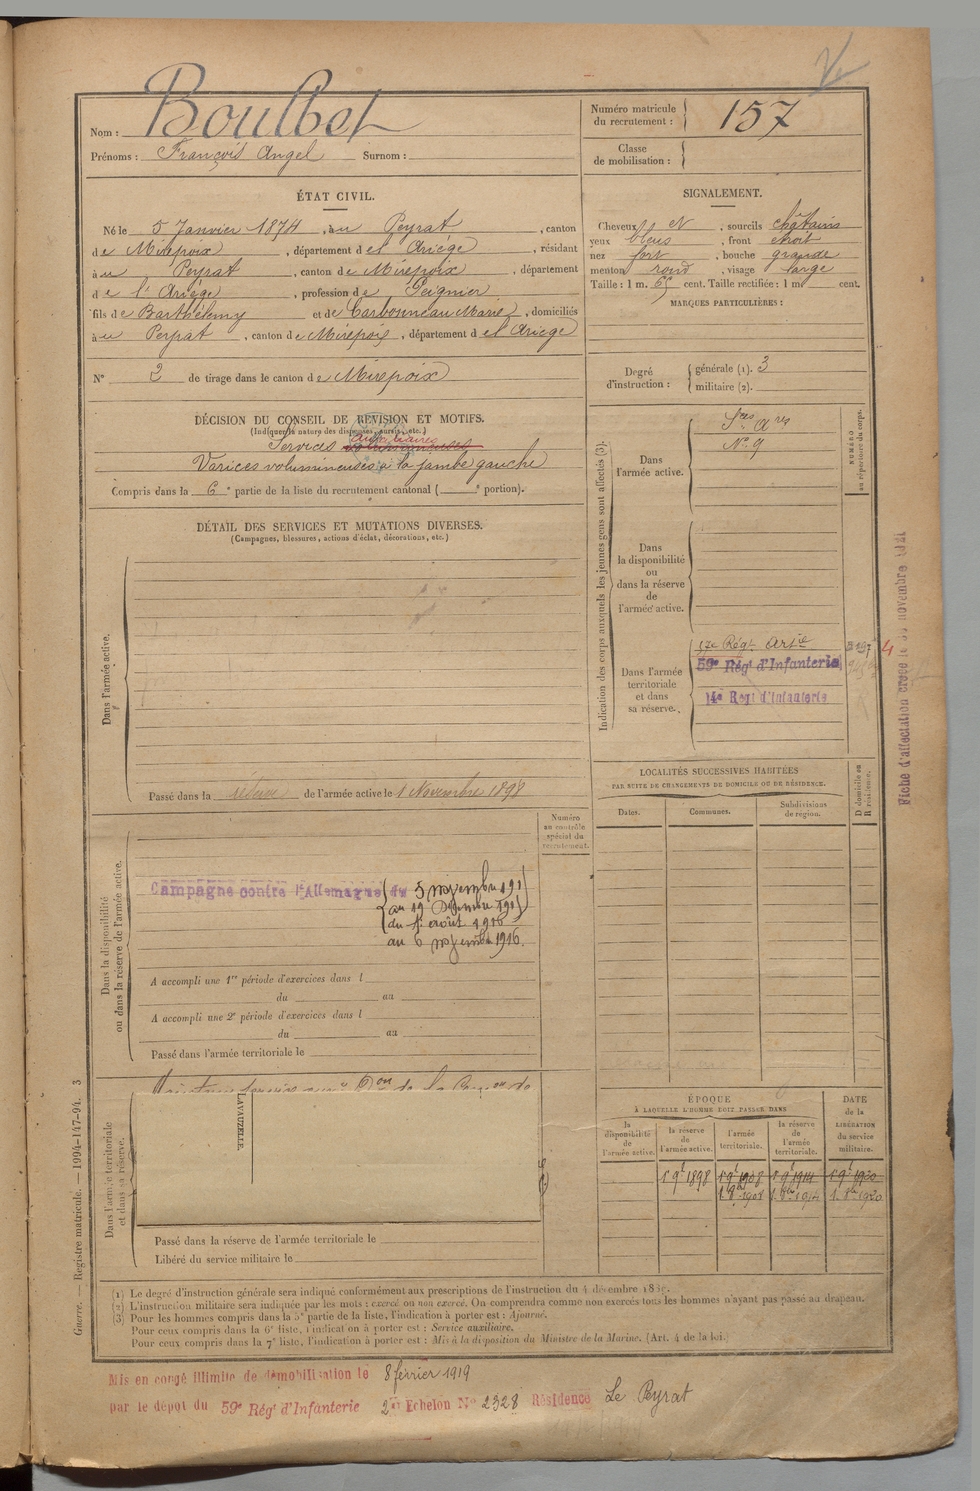 Nom : Boulbet
Prénoms : François Angel Surnom :
Numéro matricule du recrutement : 157
Classe de mobilisation :
ÉTAT CIVIL.
Né le 5 Janvier 1874, à u Peyrat, canton
de Mirepoix, département de l'Ariège, résidant
à u Peyrat, canton de Mirepoix, département
de l'Ariège, profession de Peignier
fils de Barthélemy et de Carbonneau Marie, domiciliés
à u Peyrat, canton de Mirepoix, département de l'Ariège
N° 2 de tirage dans le canton de Mirepoix
SIGNALEMENT.
Cheveux et, sourcils châtains
yeux bleus, front étroit
nez fort, bouche grande
menton rond, visage large
Taille : 1 m. 65 cent. Taille rectifiée : 1 m cent.
MARQUES PARTICULIÈRES :
Degré d'instruction : générale (1). 3
militaire (2).
DÉCISION DU CONSEIL DE REVISION ET MOTIFS.
(Indiquer la nature des dispenses, sursis, etc.)
Services auxiliaires
Varices volumineuses à la jambe gauche
Compris dans la 6e partie de la liste du recrutement cantonal ( e portion).
DÉTAIL DES SERVICES ET MUTATIONS DIVERSES.
(Campagnes, blessures, actions d'éclat, décorations, etc.)
Dans l'armée active.
Passé dans la réserve de l'armée active le 1 Novembre 1898
Indication des corps auxquels les jeunes gens sont affectés (3).
NUMÉRO au répertoire du corps.
Dans l'armée active.
N° 9
Dans la disponibilité ou dans la réserve de l'armée active.
Dans l'armée territoriale et dans sa réserve.
17e Régt Artie
59e Régt d'Infanterie
14e Regt d'Infanterie
Fiche d'affectation créée le novembre
LOCALITÉS SUCCESSIVES HABITÉES
PAR SUITE DE CHANGEMENTS DE DOMICILE OU DE RÉSIDENCE.
Dates. Communes. Subdivisions de région. D domicile ou R résidence.
Numéro au contrôle spécial du recrutement.
Dans la disponibilité ou dans la réserve de l'armée active.
Campagne contre l'Allemagne du 5 novembre 191
au 19
du 1er août 1916
au 6 novembre 1916.
A accompli une 1re période d'exercices dans l
du au
A accompli une 2e période d'exercices dans l
du au
Passé dans l'armée territoriale le
Dans l'armée territoriale et dans sa réserve.
LAVAUZELLE.
Passé dans la réserve de l'armée territoriale le
Libéré du service militaire le
ÉPOQUE
À LAQUELLE L'HOMME DOIT PASSER DANS
la disponibilité de l'armée active. la réserve de l'armée active. l'armée territoriale. la réserve de l'armée territoriale. DATE de la LIBÉRATION du service militaire.
1 9e 1898 1 9e 1908 1 9e 1914 1 9e 1920
1 8bre 1908 1 8bre 1914 1 8bre 1920
Guerre. — Registre matricule. — 1994-147-94. 3
(1) Le degré d'instruction générale sera indiqué conformément aux prescriptions de l'instruction du 4 décembre
(2) L'instruction militaire sera indiquée par les mots : exercé ou non exercé. On comprendra comme non exercés tous les hommes n'ayant pas passé au drapeau.
(3) Pour les hommes compris dans la 5e partie de la liste, l'indication à porter est : Ajourné.
Pour ceux compris dans la 6e liste, l'indication à porter est : Service auxiliaire.
Pour ceux compris dans la 7e liste, l'indication à porter est : Mis à la disposition du Ministre de la Marine. (Art. 4 de la loi.)
Mis en congé illimité de démobilisation le 8 février 1919
par le dépôt du 59e Régt d'Infanterie 2e Echelon N° 2328 Résidence Le Peyrat